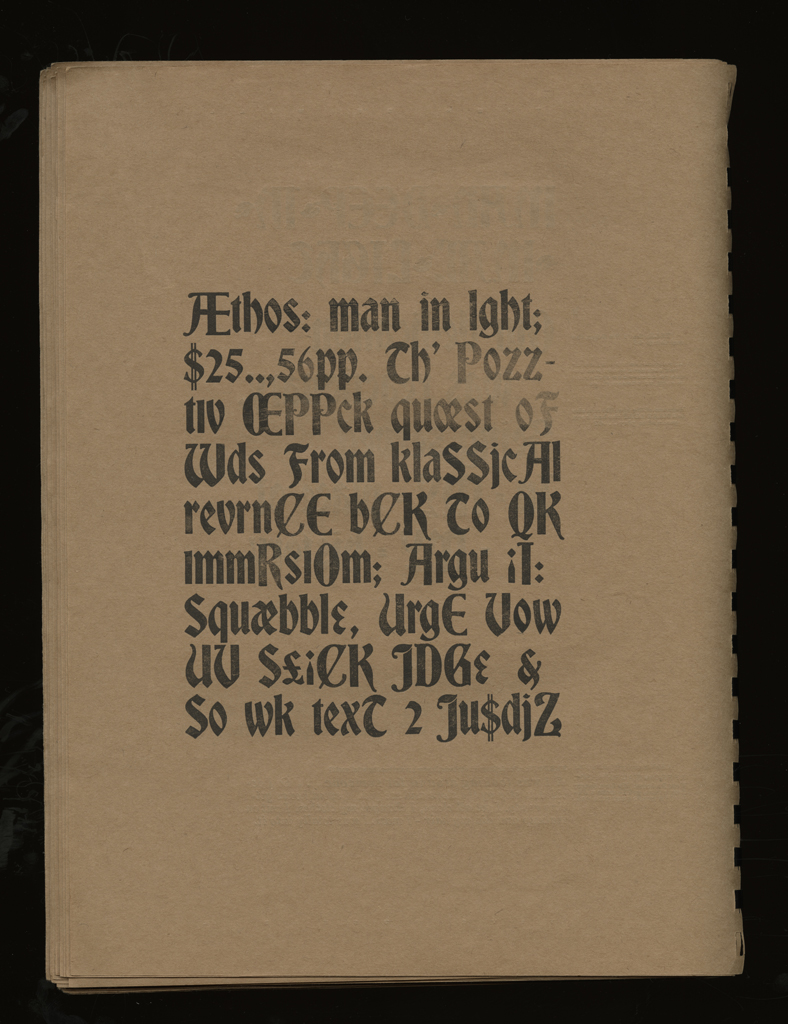 Æthos: man in lght;
$25..,56pp. Th' Pozz-
tıv ŒPPck quœst oF
Wds From klaSSjcAl
revrnȻE bȻK To QK
ımmRsıOm; Argu ¡T:
Squæbblɛ, UrgE Vow
UV S£¡ȻK JDGɛ &
So wk texT 2 Ju$djZ